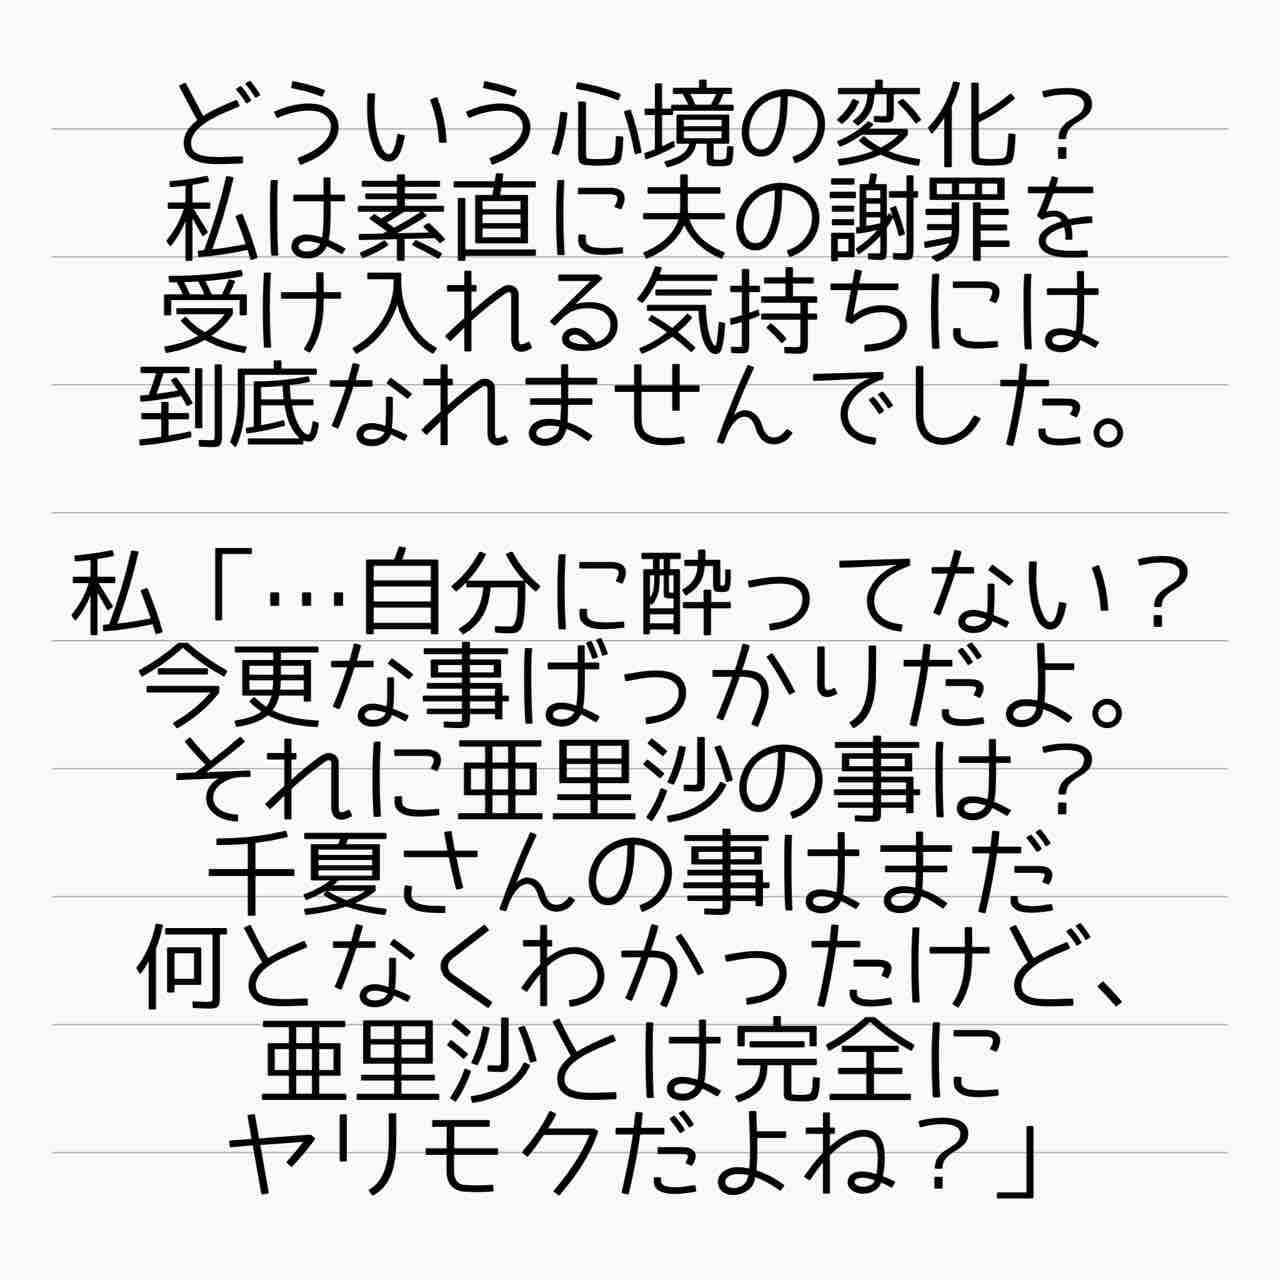 どういう心境の変化？
私は素直に夫の謝罪を
受け入れる気持ちには
到底なれませんでした。
私「…自分に酔ってない？
今更な事ばっかりだよ。
それに亜里沙の事は？
千夏さんの事はまだ
何となくわかったけど、
亜里沙とは完全に
ヤリモクだよね？」